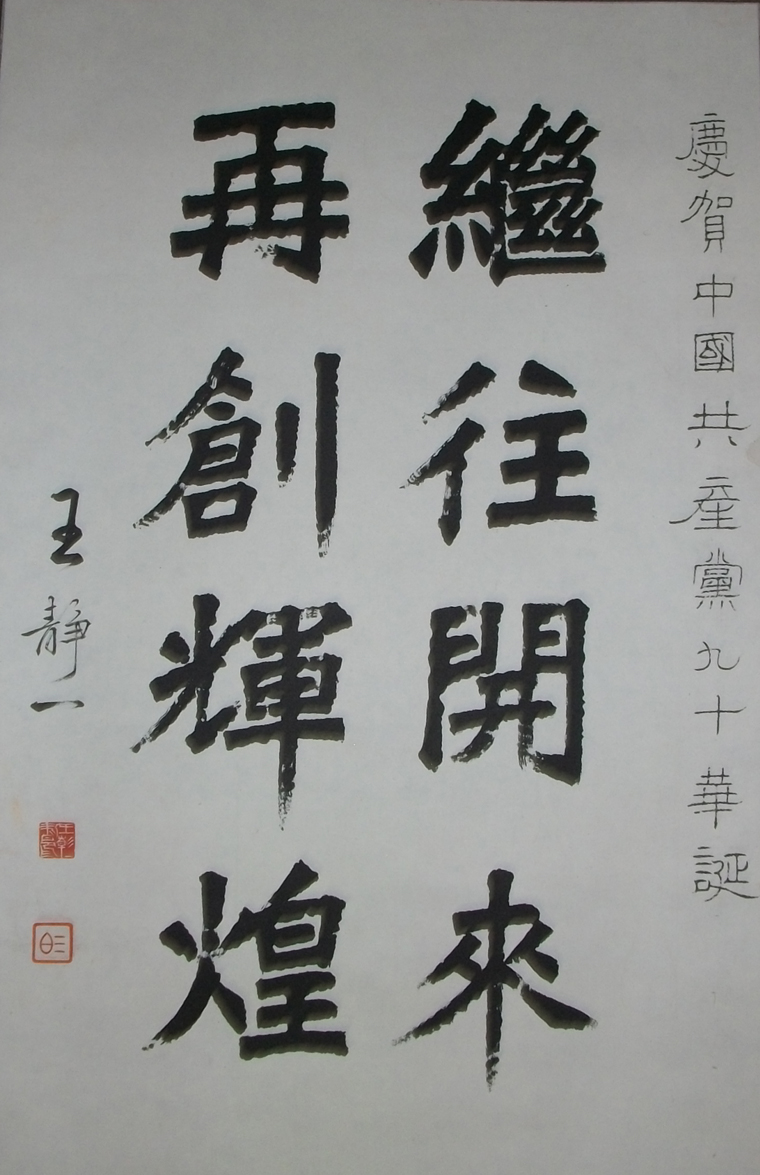 慶賀中國共產黨九十華誕
繼往開來
再創輝煌
王靜一